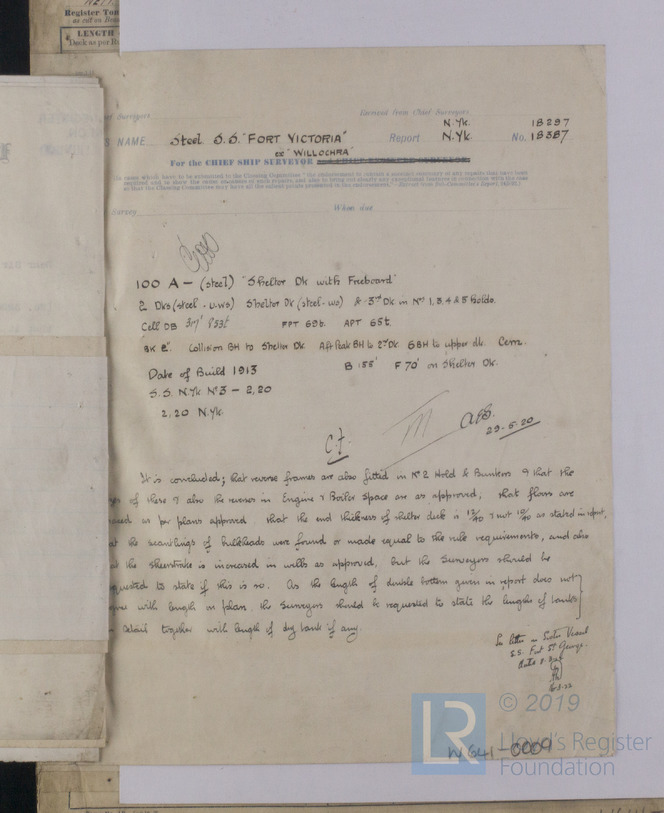 Register Ton
as cut on Bea
LENGTH
Deck as per R
Surveyors
Extract from Chief Surveyors
N.Yk. 18297
S NAME Steel S.S. "FORT VICTORIA" Report N.Yk. No. 18387
ex "WILLOCHRA"
For the CHIEF SHIP SURVEYOR
Survey When due
100 A - (steel) "Shelter Dk with Freeboard"
2 Dks (steel - u.ws) Shelter Dk (steel-ws) & 3rd Dk in Nos 1, 3, 4 & 5 Holds.
Cell DB 317' 853t FPT 69t. APT 65t.
BK 2". Collision BH to Shelter Dk. Aft Peak BH to 2nd Dk. 6BH to upper dk. Cem.
Date of Build 1913 B 155' F 70' on Shelter Dk.
S.S. N.Yk No 3 - 2,20
2,20 N.Yk.
29-5-20
C.f.
It is concluded; that reverse frames are also fitted in No 2 Hold & Bunkers & that the
of these & also the reverses in Engine & Boiler Space are as approved; that floors are
as per plans approved that the end thickness of shelter deck is 12/40 & not 10/40 as stated in report,
the scantlings of bulkheads were found or made equal to the rule requirements, and also
the sheerstrake is increased in wells as approved, but the Surveyors should be
requested to state if this is so. As the length of double bottom given in report does not
with length on plan, the Surveyors should be requested to state the lengths of tanks
in detail together with length of dry tank if any.
See letter on Sister Vessel
S.S. Fort St George
W641-0009
LR
© 2019
Lloyd's Register
Foundation